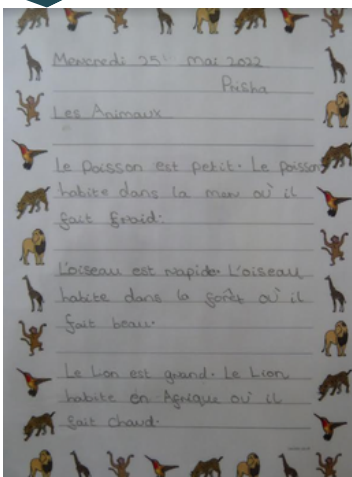 Mercredi 25 mai 2022
Prisha
Les Animaux
Le poisson est petit. Le poisson
habite dans la mer où il
fait froid.
L'oiseau est rapide. L'oiseau
habite dans la forêt où il
fait beau.
Le Lion est grand. Le Lion
habite en Afrique où il
fait chaud.